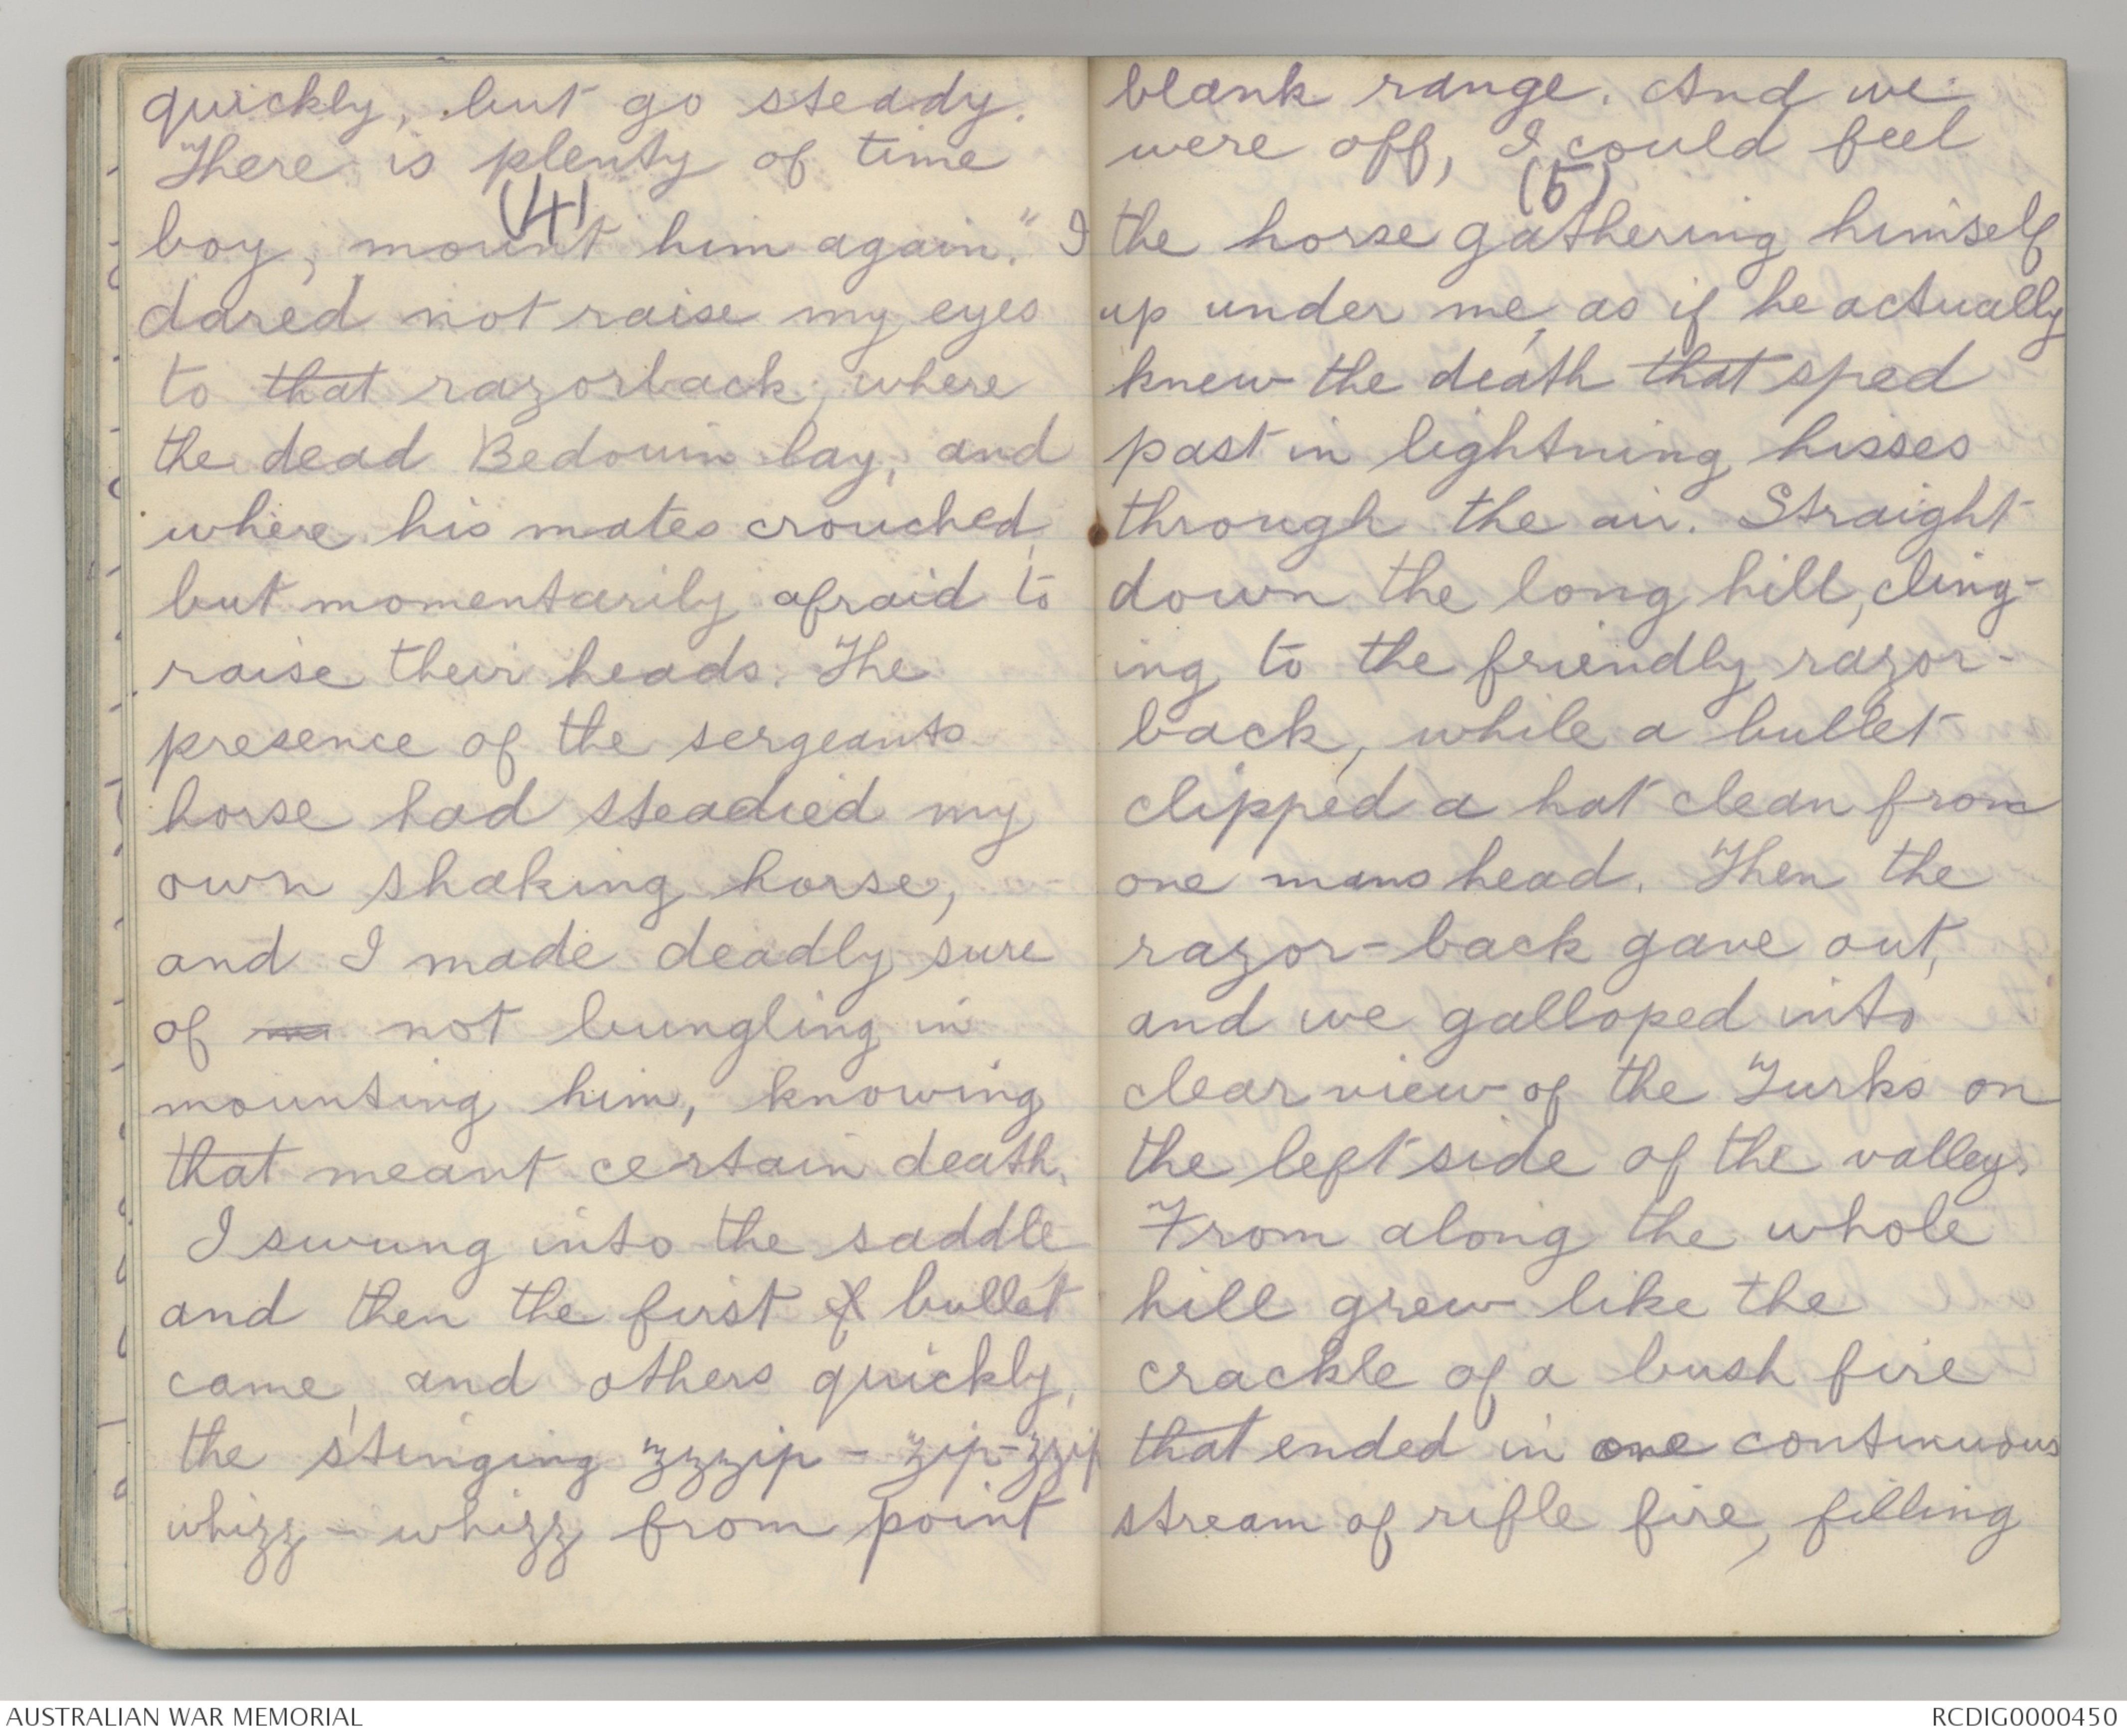 quickly, but go steady.
There is plenty of time
(4)
boy, mount him again." I
dared not raise my eyes
to that razorback, where
the dead Bedouin lay, and
where his mates crouched,
but momentarily afraid to
raise their heads. The
presence of the sergeants
horse had steadied my
own shaking horse,
and I made deadly sure
of not bungling in
mounting him, knowing
that meant certain death.
I swung into the saddle
and then the first bullet
came, and others quickly,
the stinging zzzip - zip-zzip
whizz - whizz from point
blank range. And we
were off, I could feel
(5)
the horse gathering himself
up under me, as if he actually
knew the death that sped
past in lightning hisses
through the air. Straight
down the long hill, cling-
ing to the friendly razor-
back, while a bullet
clipped a hat clean from
one mans head. Then the
razor-back gave out,
and we galloped into
clear view of the Turks on
the left side of the valley.
From along the whole
hill grew like the
crackle of a bush fire
that ended in one continuous
stream of rifle fire, filling
AUSTRALIAN WAR MEMORIAL
RCDIG0000450